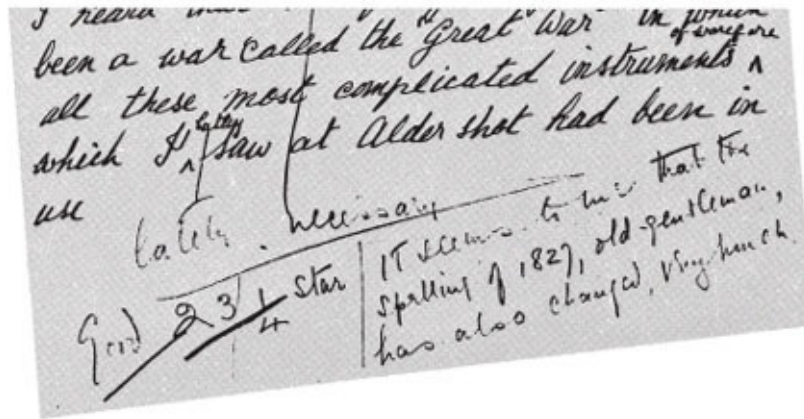 I heard
been a war called the "Great War" in which
all these most complicated instruments ^ of warfare
which I ^ saw at Aldershot had been in
use
lately necessary
Good 23 1/4 Star
It seems to me that the
spelling of 1827, old gentleman,
has also changed, very much.